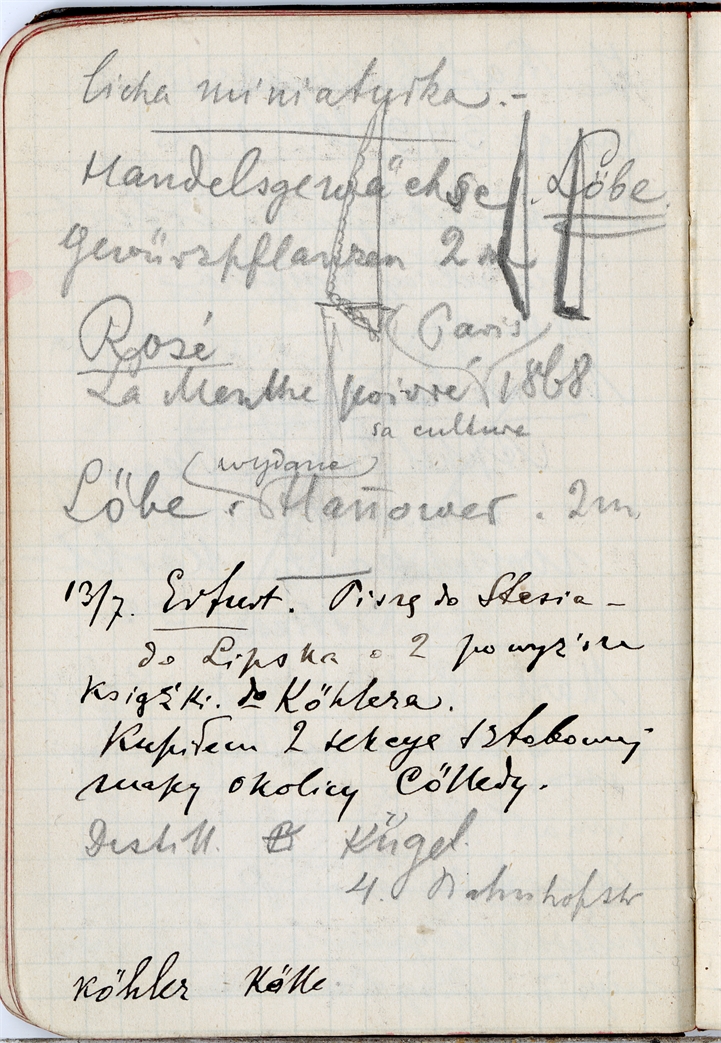 licha miniaturka.-
Handelsgewächse. Löbe
Gewürzpflanzen 2 m
Rosé (Paris)
La Menthe poivré 1868
sa culture
(wydane)
Löbe. Hannower. 2m
13/7. Erfurt. Piszę do Stesia -
do Lipska o 2 powyższe
Książki. do Köhlera.
Kupiłem 2 sekcye sztabowej
mapy okolicy Cölledy.
Destill. Kügel.
4. Bahnhofstr
Köhler Kölle